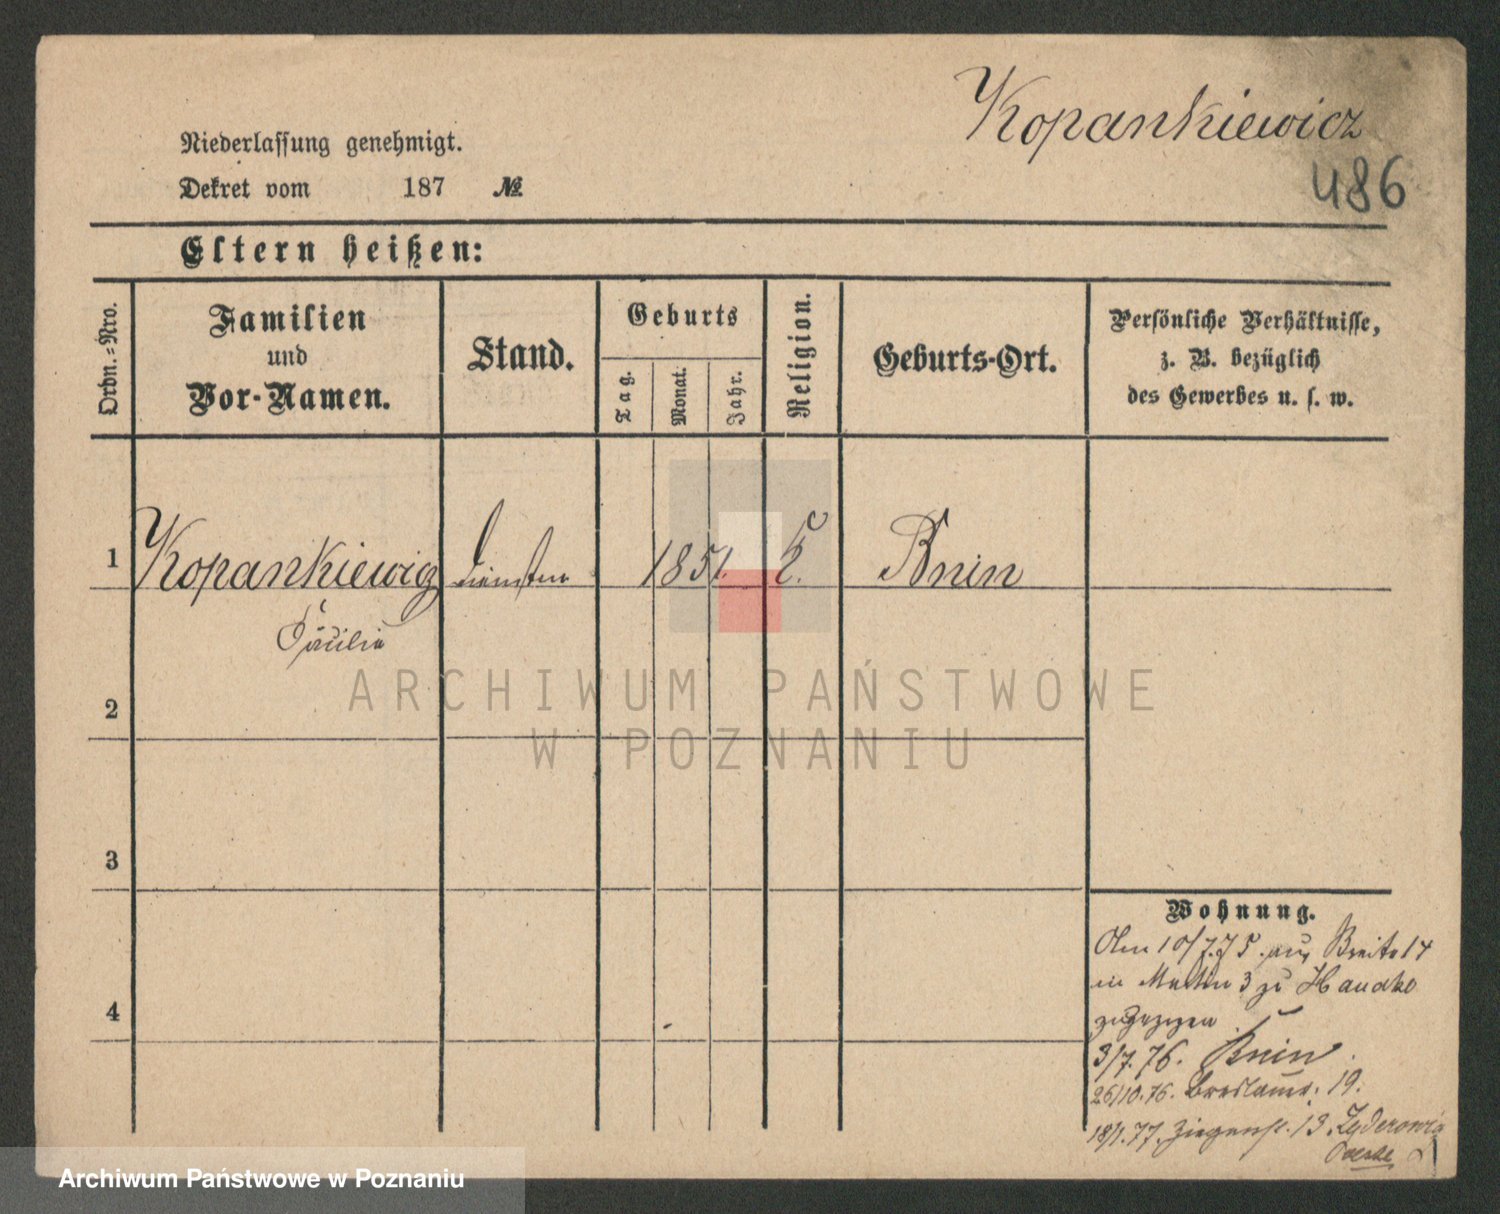 Kopankiewicz
486
Niederlassung genehmigt.
Dekret vom 187 №
Eltern heißen:
Ordn.=Nro.
Familien
und
Vor-Namen.
Stand.
Geburts
Tag.
Monat.
Jahr.
Religion.
Geburts-Ort.
Persönliche Verhältnisse,
z. B. bezüglich
des Gewerbes u. s. w.
1 Kopankiewicz 1851. k. Bnin
Cäcilie
2
3
4
ARCHIWUM PAŃSTWOWE
W POZNANIU
Wohnung.
10/7.75. aus Breite 14
in Martin 3 zu
zugezogen
3/7. 76. Bnin.
26/10.76. Breslauer. 19.
18/1.77. Ziegenst. 13
Archiwum Państwowe w Poznaniu